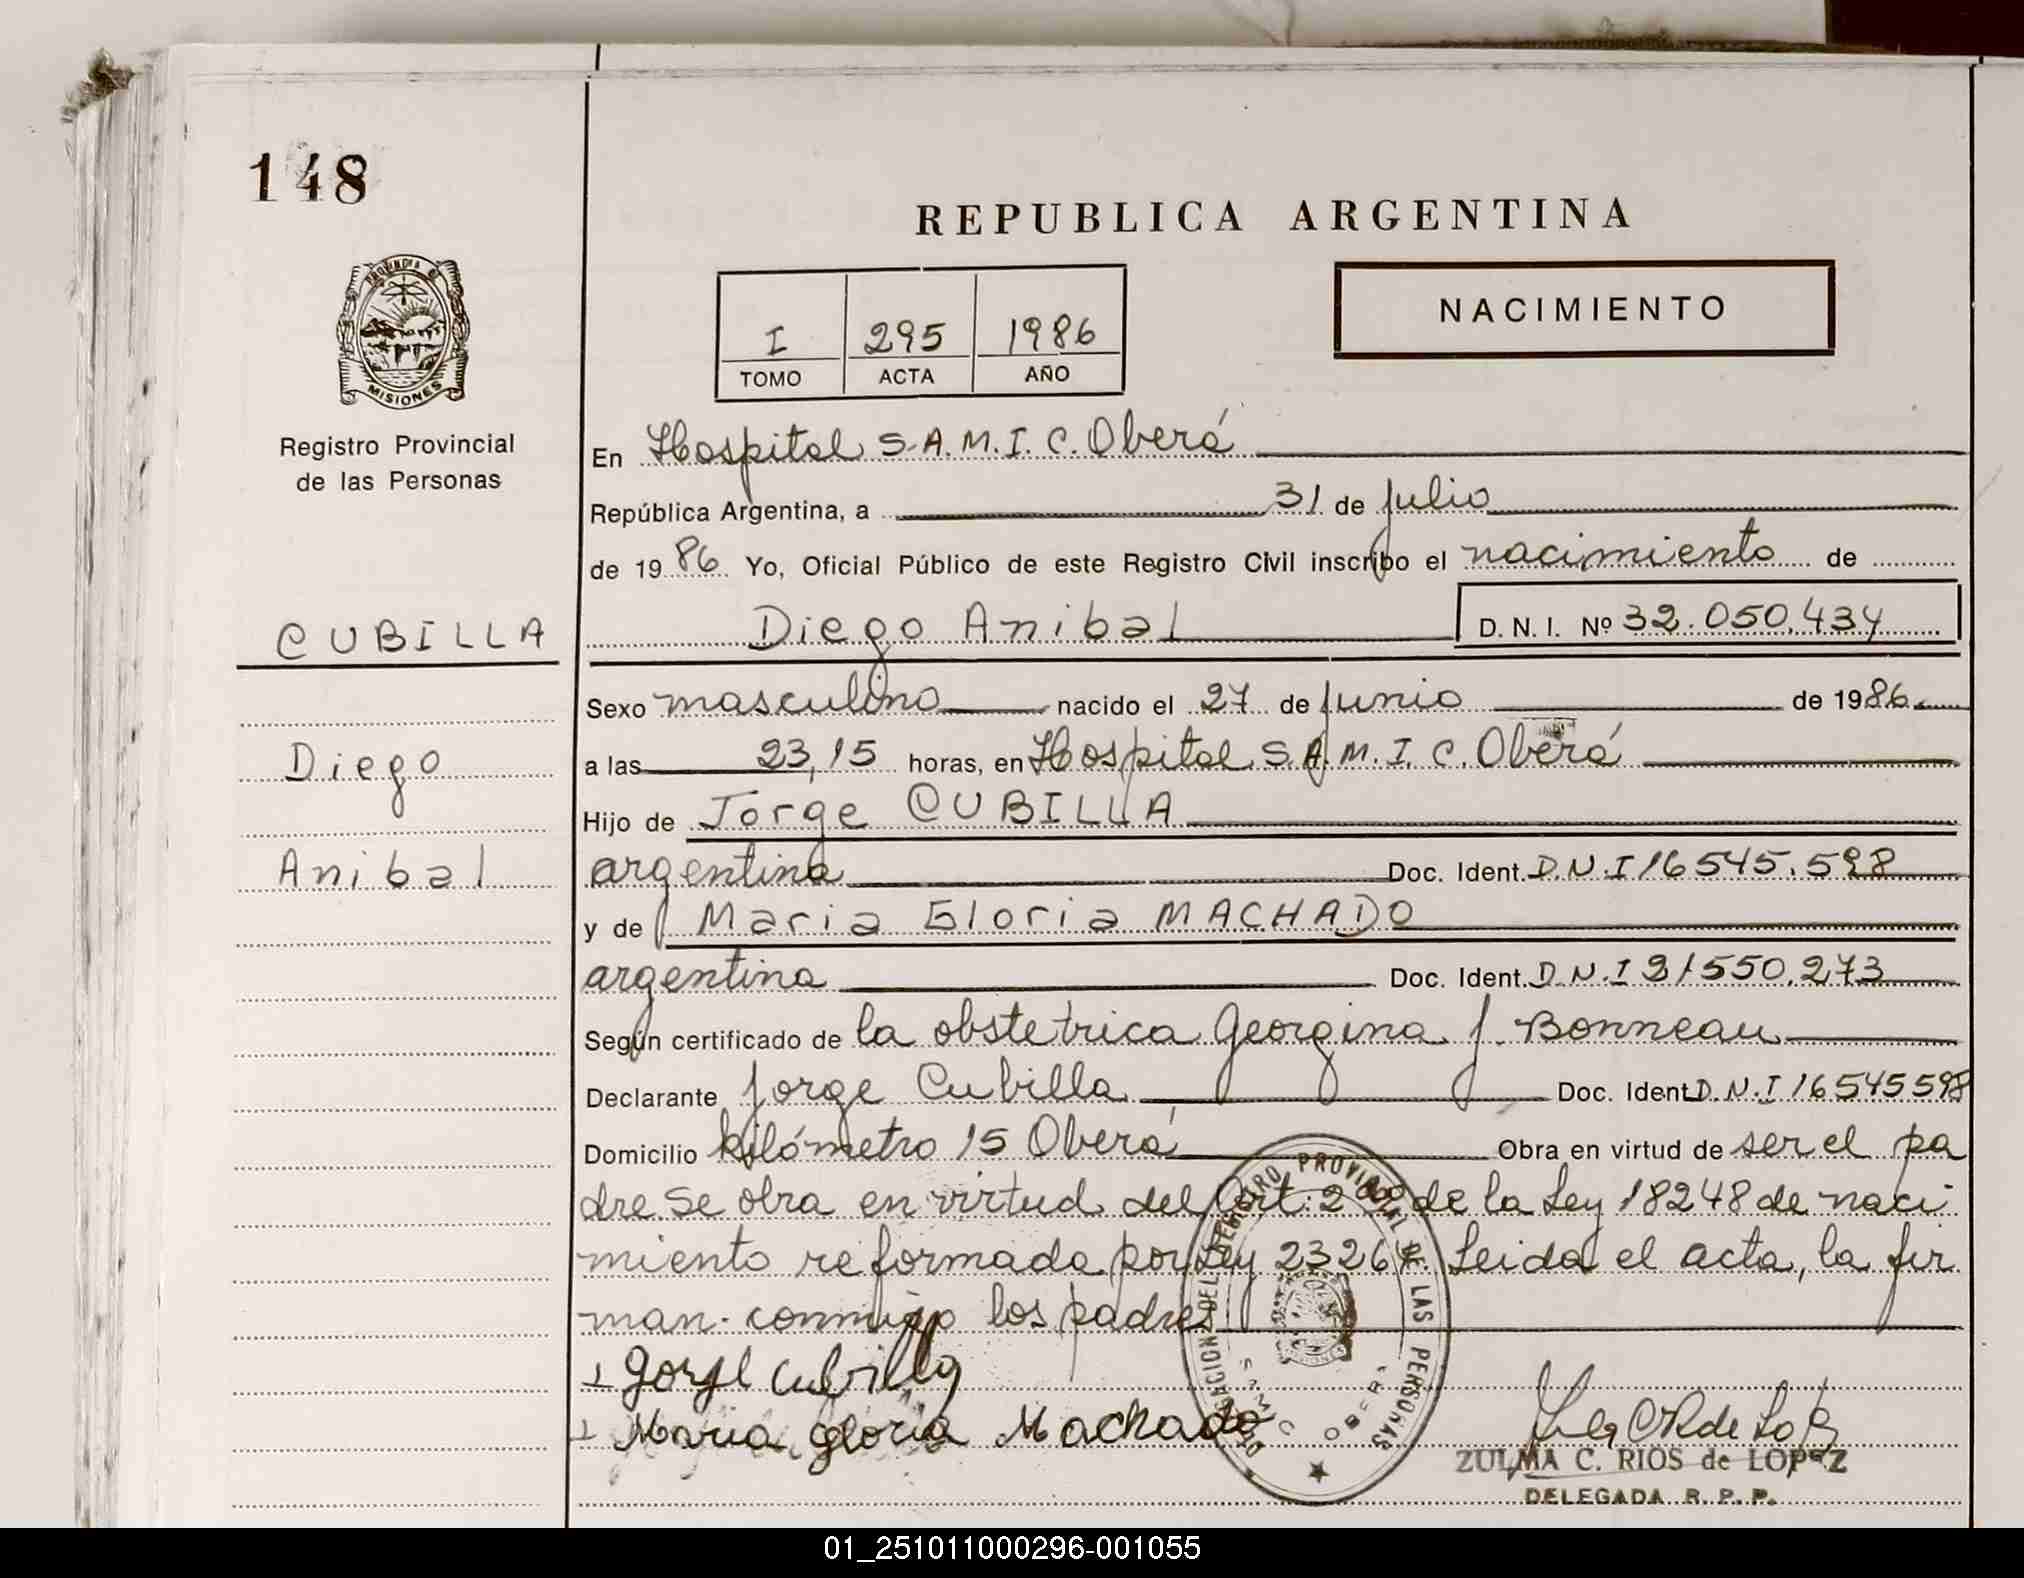 148
REPUBLICA ARGENTINA
PROVINCIA DE
MISIONES
I 295 1986
TOMO ACTA AÑO
NACIMIENTO
Registro Provincial
de las Personas
En Hospital S.A.M.I.C. Oberá
República Argentina, a 31 de julio
de 1986 Yo, Oficial Público de este Registro Civil inscribo el nacimiento de
CUBILLA
Diego Anibal D.N.I. Nº 32.050.434
Sexo masculino nacido el 27 de junio de 1986
Diego
a las 23,15 horas, en Hospital S.A.M.I.C. Oberá
Hijo de Jorge CUBILLA
Anibal
argentina Doc. Ident. D.N.I 16545.598
y de Maria Gloria MACHADO
argentina Doc. Ident. D.N.I 21550.273
Según certificado de la obstetrica Georgina J. Bonneau
Declarante Jorge Cubilla Doc. Ident D.N.I 16545598
Domicilio kilómetro 15 Oberá Obra en virtud de ser el pa
dre. Se obra en virtud del Art: 2º de la Ley 18248 de naci
miento reformada por Ley 23264. Leida el acta, la fir
man conmigo los padres
Jorge Cubilla
Maria Gloria Machado
DELEGACION DEL REGISTRO PROVINCIAL DE LAS PERSONAS
SAMIC OBERA
ZULMA C. RIOS de LOPEZ
DELEGADA R. P. P.
01_251011000296-001055